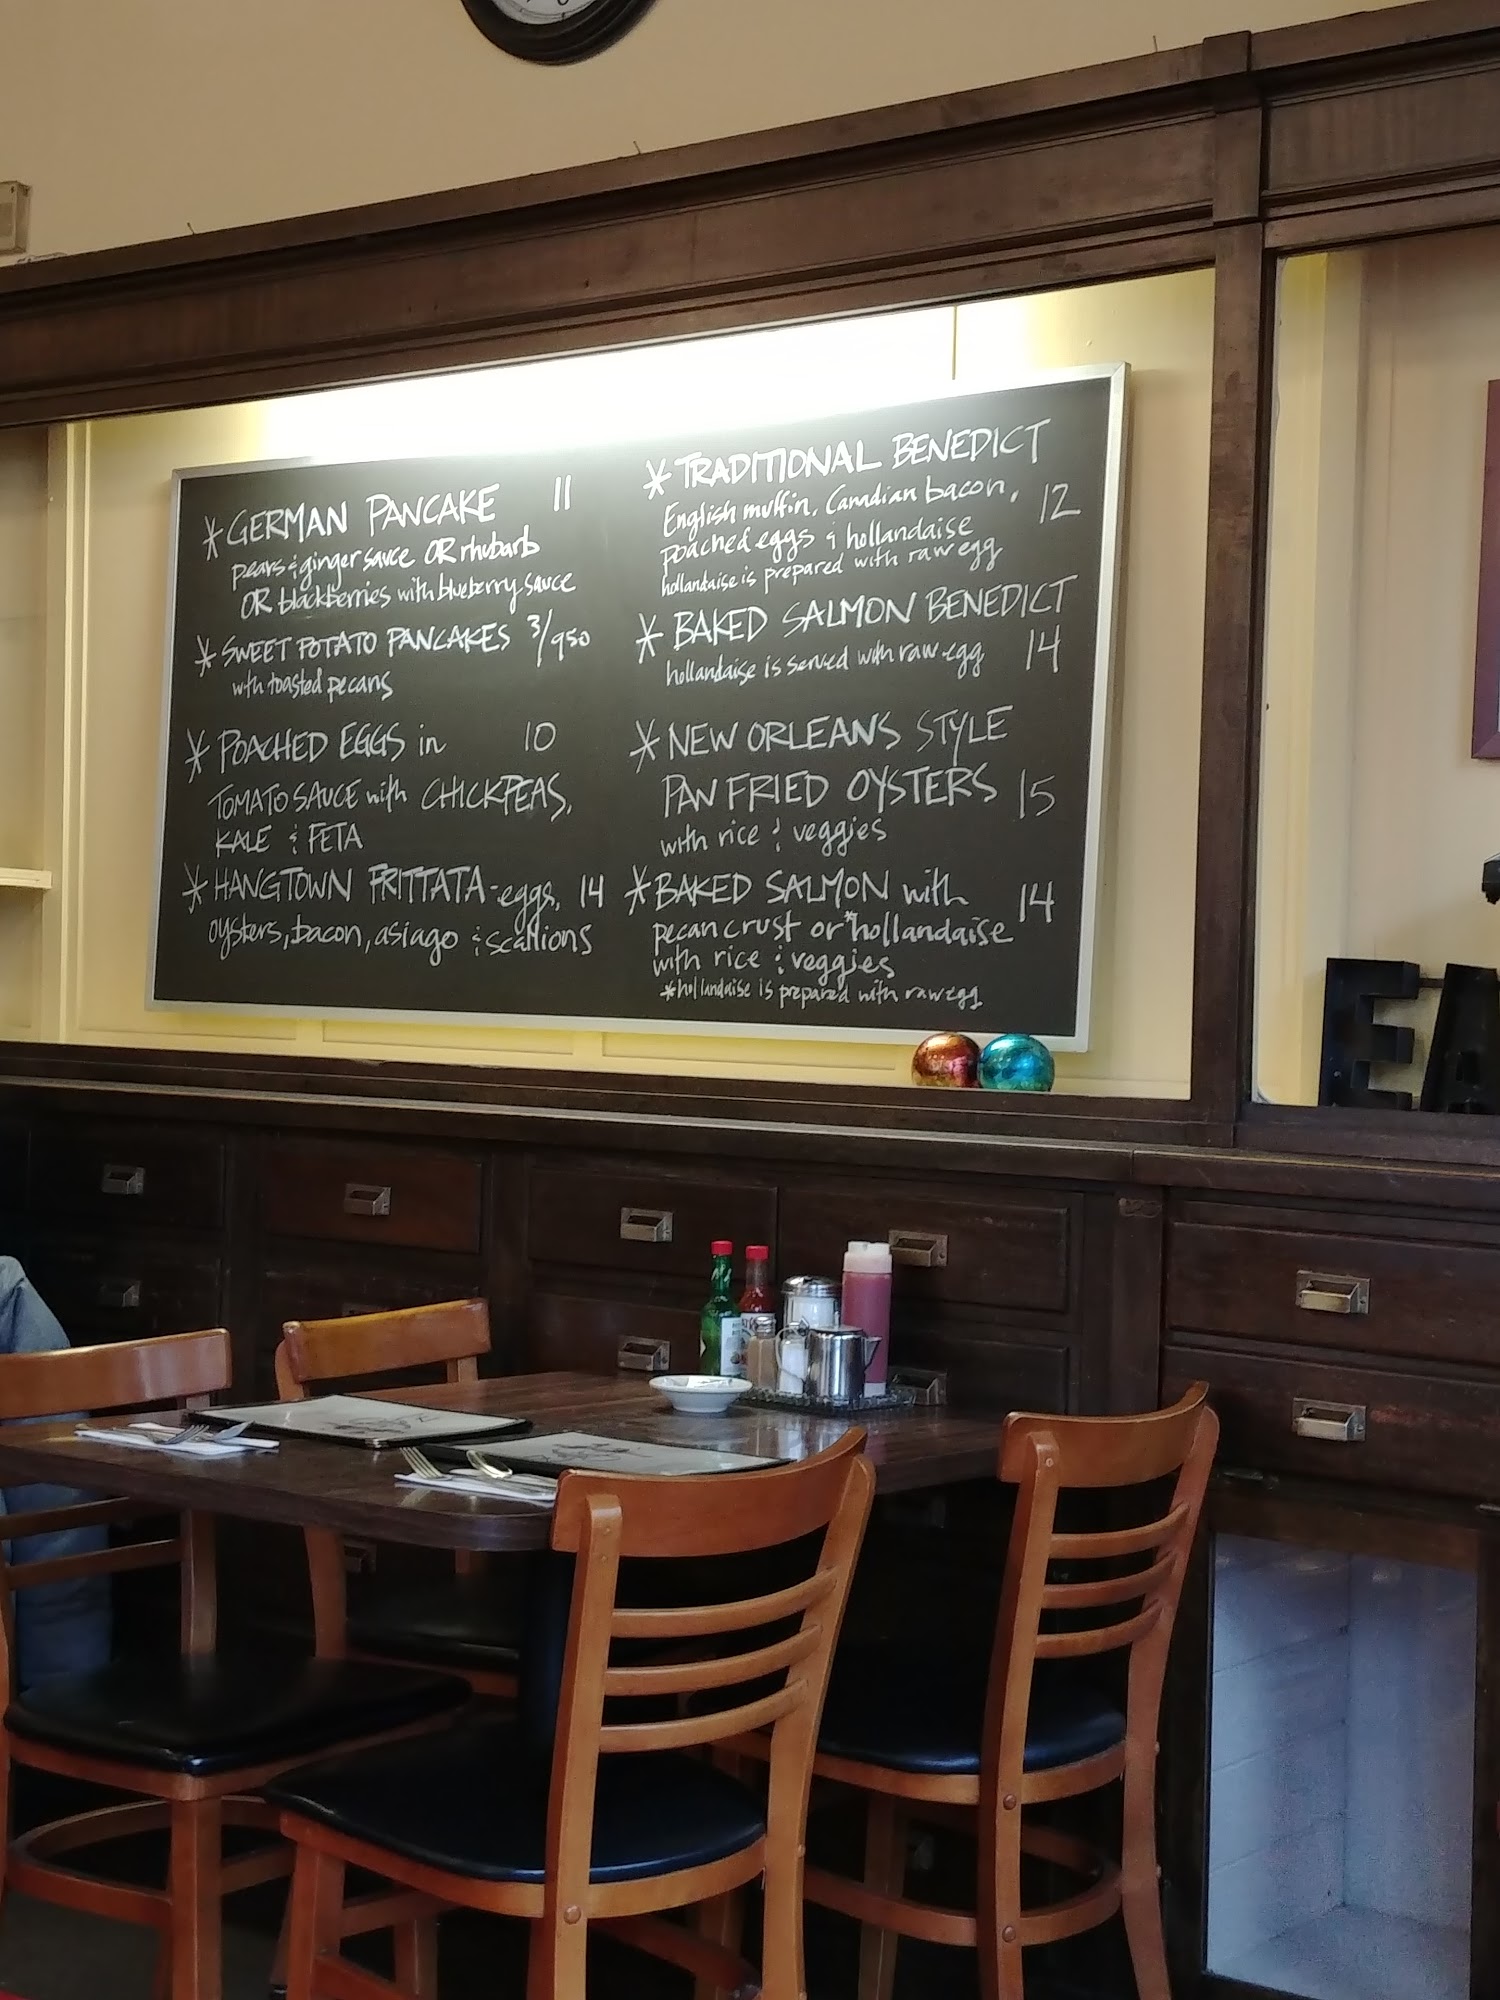 * GERMAN PANCAKE 11
pears & ginger sauce OR rhubarb
OR blackberries with blueberry sauce
* SWEET POTATO PANCAKES 3/950
with toasted pecans
* POACHED EGGS in 10
TOMATO SAUCE with CHICKPEAS,
KALE & FETA
* HANGTOWN FRITTATA - eggs, 14
oysters, bacon, asiago & scallions
* TRADITIONAL BENEDICT
English muffin, Canadian bacon, 12
poached eggs & hollandaise
hollandaise is prepared with raw egg
* BAKED SALMON BENEDICT
hollandaise is served with raw egg 14
* NEW ORLEANS STYLE
PAN FRIED OYSTERS 15
with rice & veggies
* BAKED SALMON with 14
pecan crust or *hollandaise
with rice & veggies
*hollandaise is prepared with raw egg
EA